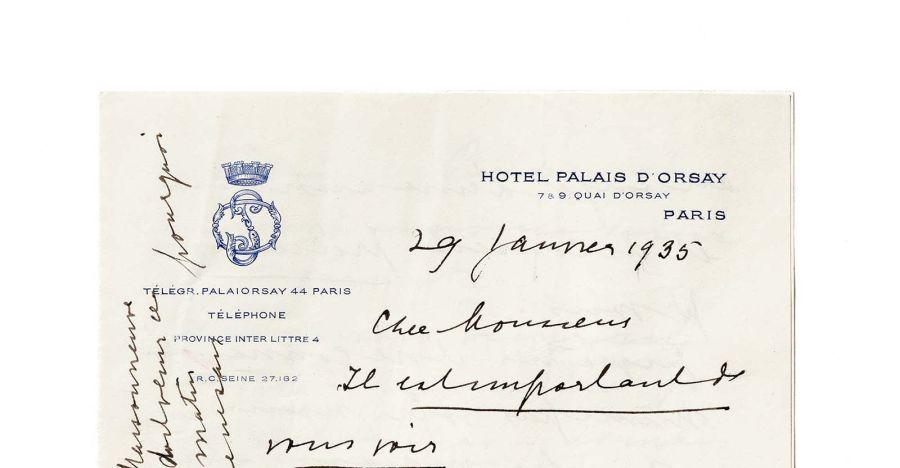 HOTEL PALAIS D'ORSAY
7 & 9. QUAI D'ORSAY
PARIS
TÉLÉGR. PALAIORSAY 44 PARIS
TÉLÉPHONE
PROVINCE INTER LITTRÉ 4
R.C. SEINE 27.182
29 Janvier 1935
Cher Monsieur
Il est important de
vous voir
Maisonneuve pourquoi
doit venir ce
matin